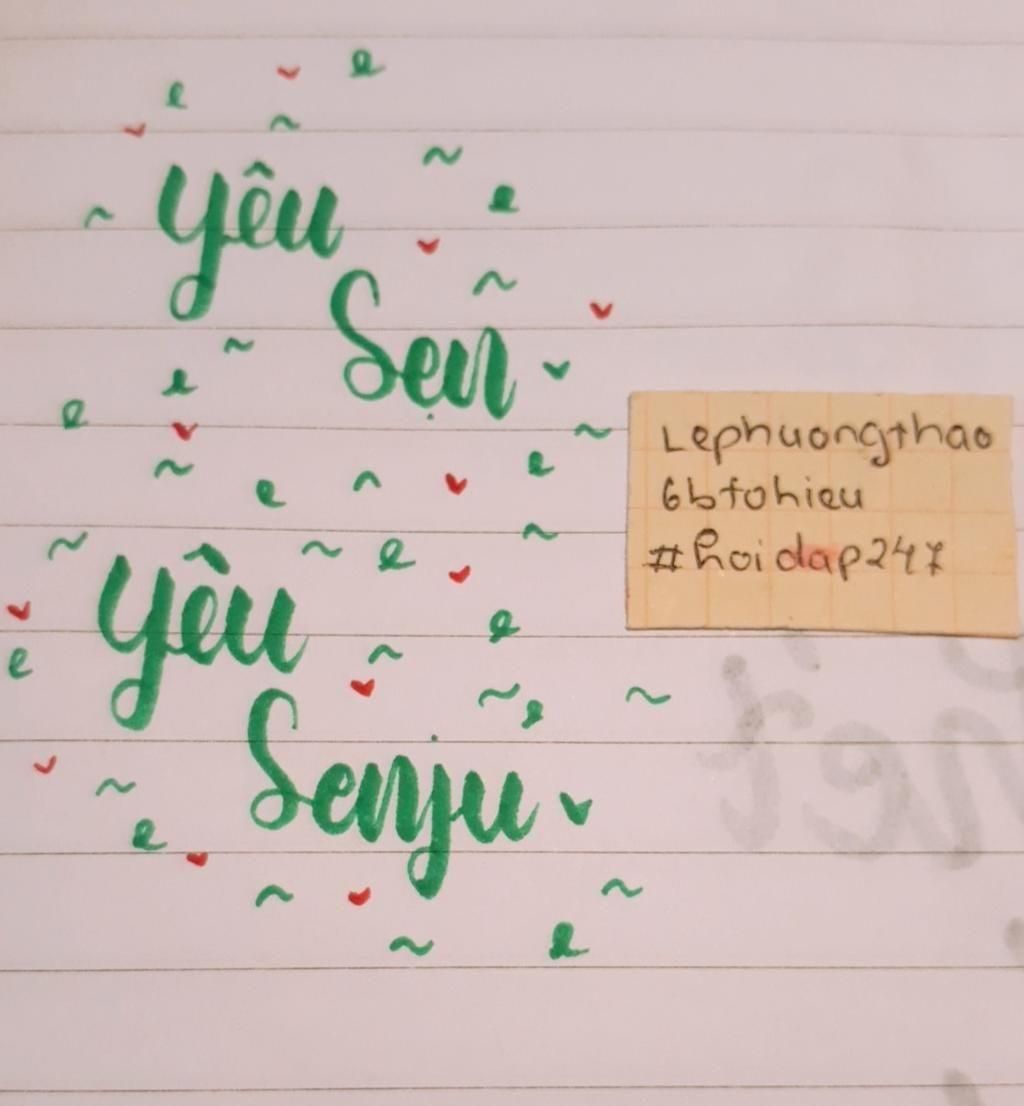 yêu
Sẹn
yêu
Senju
Lephuongthao
6btohieu
#hoidap247